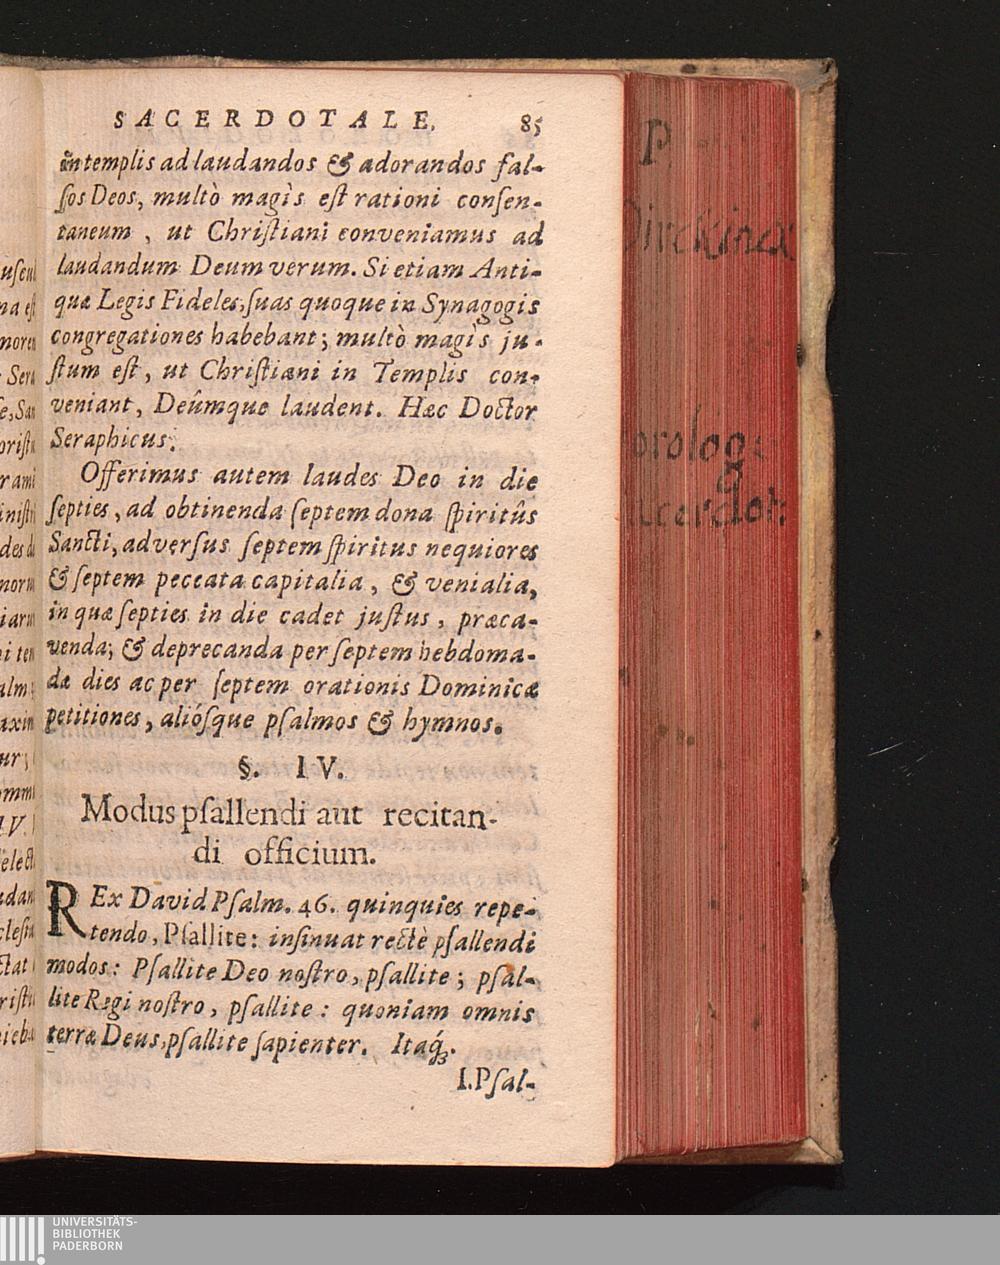 SACERDOTALE. 85
in templis ad laudandos & adorandos fal-
ſos Deos, multò magìs eſt rationi conſen-
taneum, ut Chriſtiani conveniamus ad
laudandum Deum verum. Si etiam Anti-
quæ Legis Fideles, ſuas quoque in Synagogis
congregationes habebant; multò magìs ju-
ſtum eſt, ut Chriſtiani in Templis con-
veniant, Deúmque laudent. Hæc Doctor
Seraphicus.
Offerimus autem laudes Deo in die
ſepties, ad obtinenda ſeptem dona ſpiritûs
Sancti, adverſus ſeptem ſpiritus nequiores
& ſeptem peccata capitalia, & venialia,
in quæ ſepties in die cadet juſtus, præca-
venda; & deprecanda per ſeptem hebdoma-
dæ dies ac per ſeptem orationis Dominicæ
petitiones, aliósque pſalmos & hymnos.
§. IV.
Modus pſallendi aut recitan-
di officium.
REx David Pſalm. 46. quinquies repe-
tendo, Pſallite: inſinuat rectè pſallendi
modos: Pſallite Deo noſtro, pſallite; pſal-
lite Regi noſtro, pſallite: quoniam omnis
terræ Deus, pſallite ſapienter. Itaq́ꝫ.
I. Pſal-
P
orolog:
UNIVERSITÄTS-
BIBLIOTHEK
PADERBORN